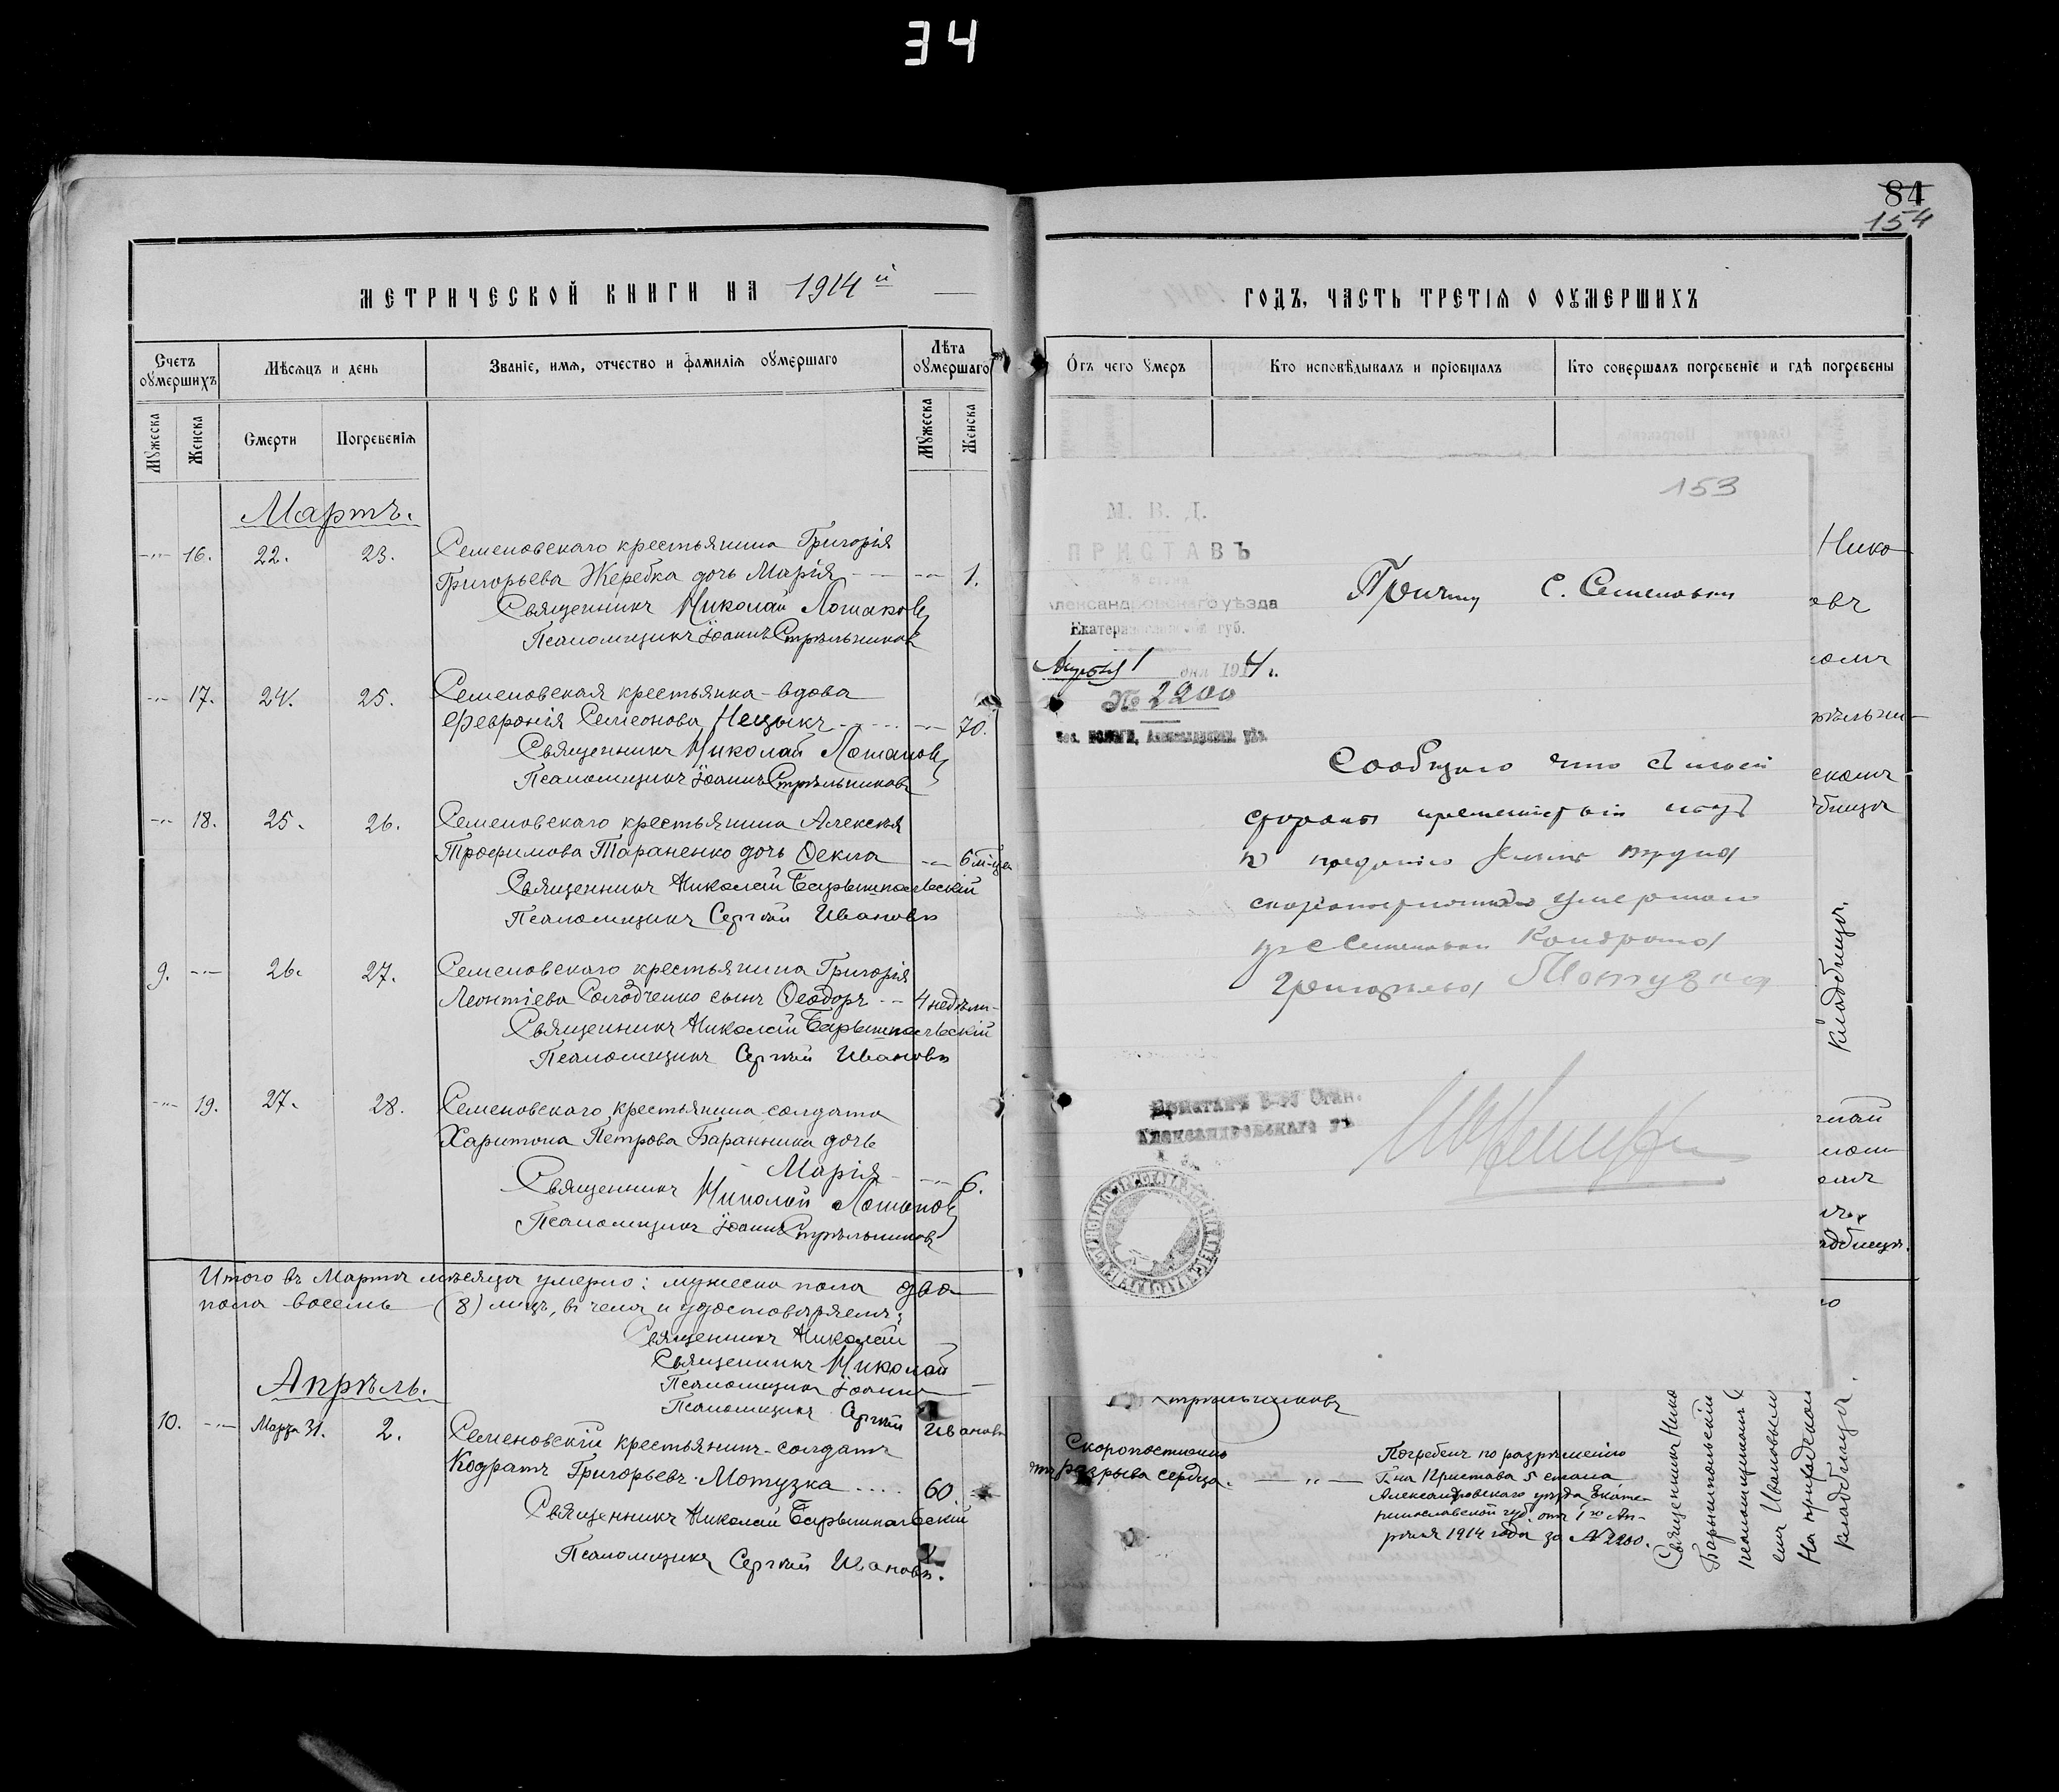 34
84
154
МЕТРИЧЕСКОЙ КНИГИ НА 1914й
Счетъ оумершихъ
Мѣсяцъ и день
Званіе, имя, отчество и фамилія оумершаго
Лѣта оумершаго
Мужеска
Женска
Смерти
Погребенія
Мужеска
Женска
Мартъ.
16. 22. 23. Семеновскаго крестьянина Григорія
Григорьева Жеребка дочь Марія 1.
Священникъ Николай
Псаломщикъ Іоаннъ Стрѣльниковъ
17. 24. 25. Семеновская крестьянка-вдова
Февронія Семеонова 70.
Священникъ Николай
Псаломщикъ Іоаннъ Стрѣльниковъ
18. 25. 26. Семеновскаго крестьянина Алексѣя
Трофимова Тараненко дочь Ѳекла 6 м-цев
Священникъ Николай Барышпольскій
Псаломщикъ Сергѣй Ивановъ
9. 26. 27. Семеновскаго крестьянина Григорія
Леонтіева Солодченко сынъ Ѳеодоръ 4 недѣли
Священникъ Николай Барышпольскій
Псаломщикъ Сергѣй Ивановъ
19. 27. 28. Семеновскаго крестьянина-солдата
Харитона Петрова Баранника дочь
Марія 6.
Священникъ Николай
Псаломщикъ Іоаннъ Стрѣльниковъ
Итого въ Мартѣ мѣсяцѣ умерло: мужеска пола два
пола восемь (8) лицъ, въ чемъ и удостовѣряемъ:
Священникъ Николай
Священникъ Николай
Псаломщикъ Іоаннъ
Псаломщикъ Сергѣй Ивановъ
Апрѣль.
10. Марта 31. 2. Семеновскій крестьянинъ-солдатъ
Кодратъ Григорьевъ Мотузка 60.
Священникъ Николай Барышпольскій
Псаломщикъ Сергѣй Ивановъ.
ГОДЪ, ЧАСТЬ ТРЕТІЯ О ОУМЕРШИХЪ
Отъ чего умеръ
Кто исповѣдывалъ и пріобщалъ
Кто совершалъ погребеніе и гдѣ погребены
153
М. В. Д.
ПРИСТАВЪ
Александровскаго уѣзда
Екатеринославской губ.
Апрѣля 1 дня 1914 г.
№ 2200
Причту С. Семеновки
Сообщаю что съ моей
стороны препятствій нѣтъ
къ преданію землѣ трупа
скоропостижно умершаго
Кондрата
Григорьева Мотузка
Приставъ 5-го Стан.
Александровскаго уѣ
Нико
овъ
омъ
скомъ
кладбищѣ.
Стрѣльниковъ
Скоропостижно
отъ разрыва сердца.
Погребенъ по разрѣшенію
Г-на Пристава 5 стана
Александровскаго уѣзда, Екате-
ринославской губ. отъ 1го Ап-
рѣля 1914 года за № 2200.
Священникъ Нико
Барышпольскій
псаломщикомъ С
емъ Ивановымъ
На приходскомъ
кладбищѣ.